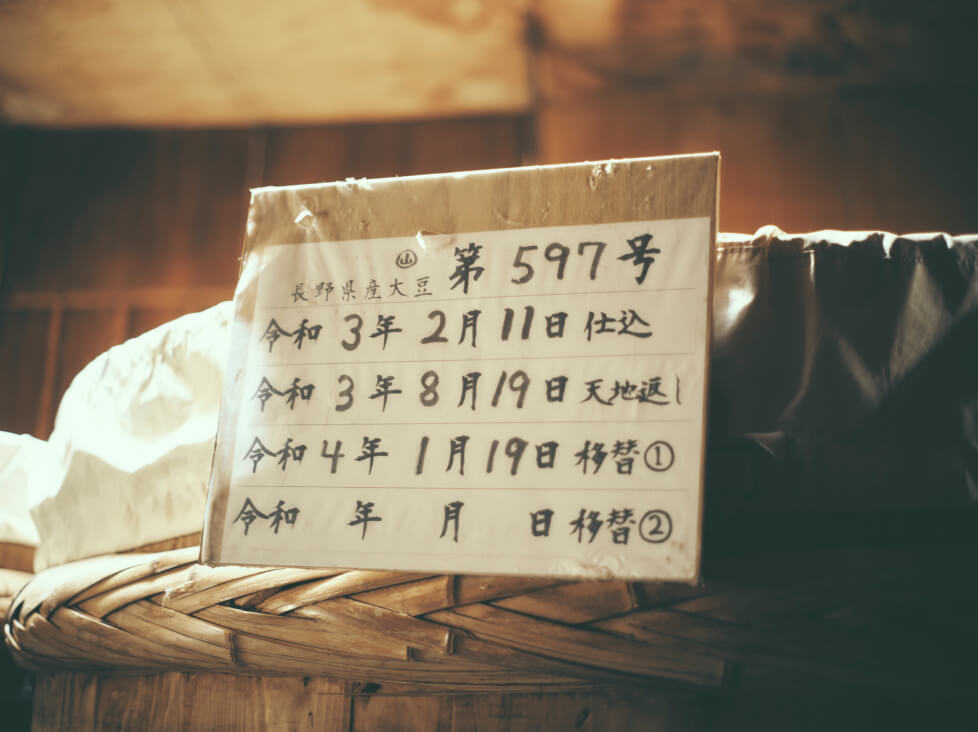 ㊤ 第 597 号
長野県産大豆
令和 3年 2月 11日 仕込
令和 3年 8月 19日 天地返し
令和 4年 1月 19日 移替①
令和 年 月 日 移替②